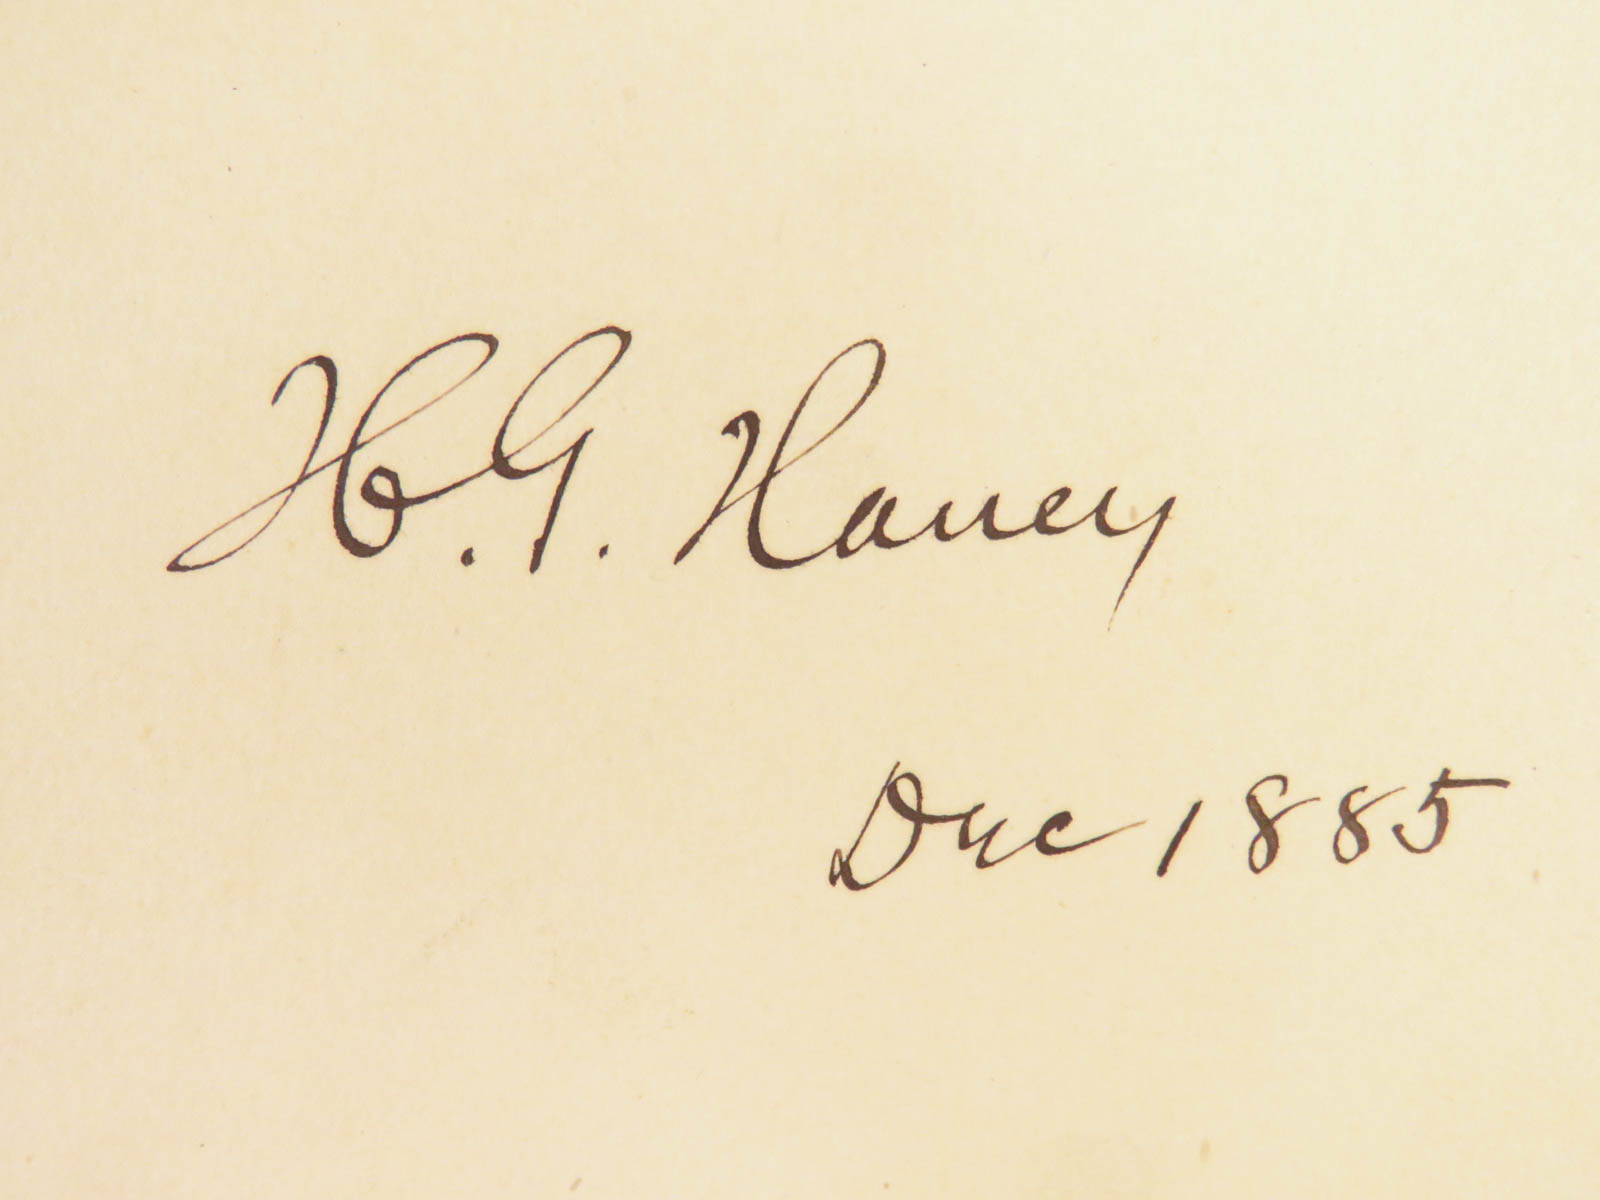 H. G. Haney
Dec 1885